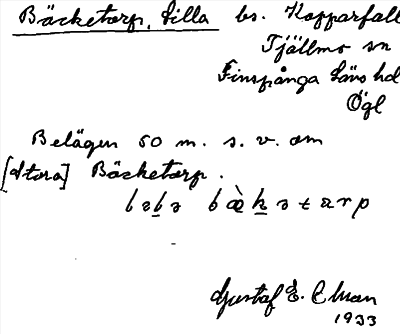 Bäcketorp, Lilla bs. Kopparfall
Tjällmo sn
Finspånga läns hd
Ögl
Belägen 50 m. s. v. om
[Stora] Bäcketorp.
Gustaf E. Elman
1933